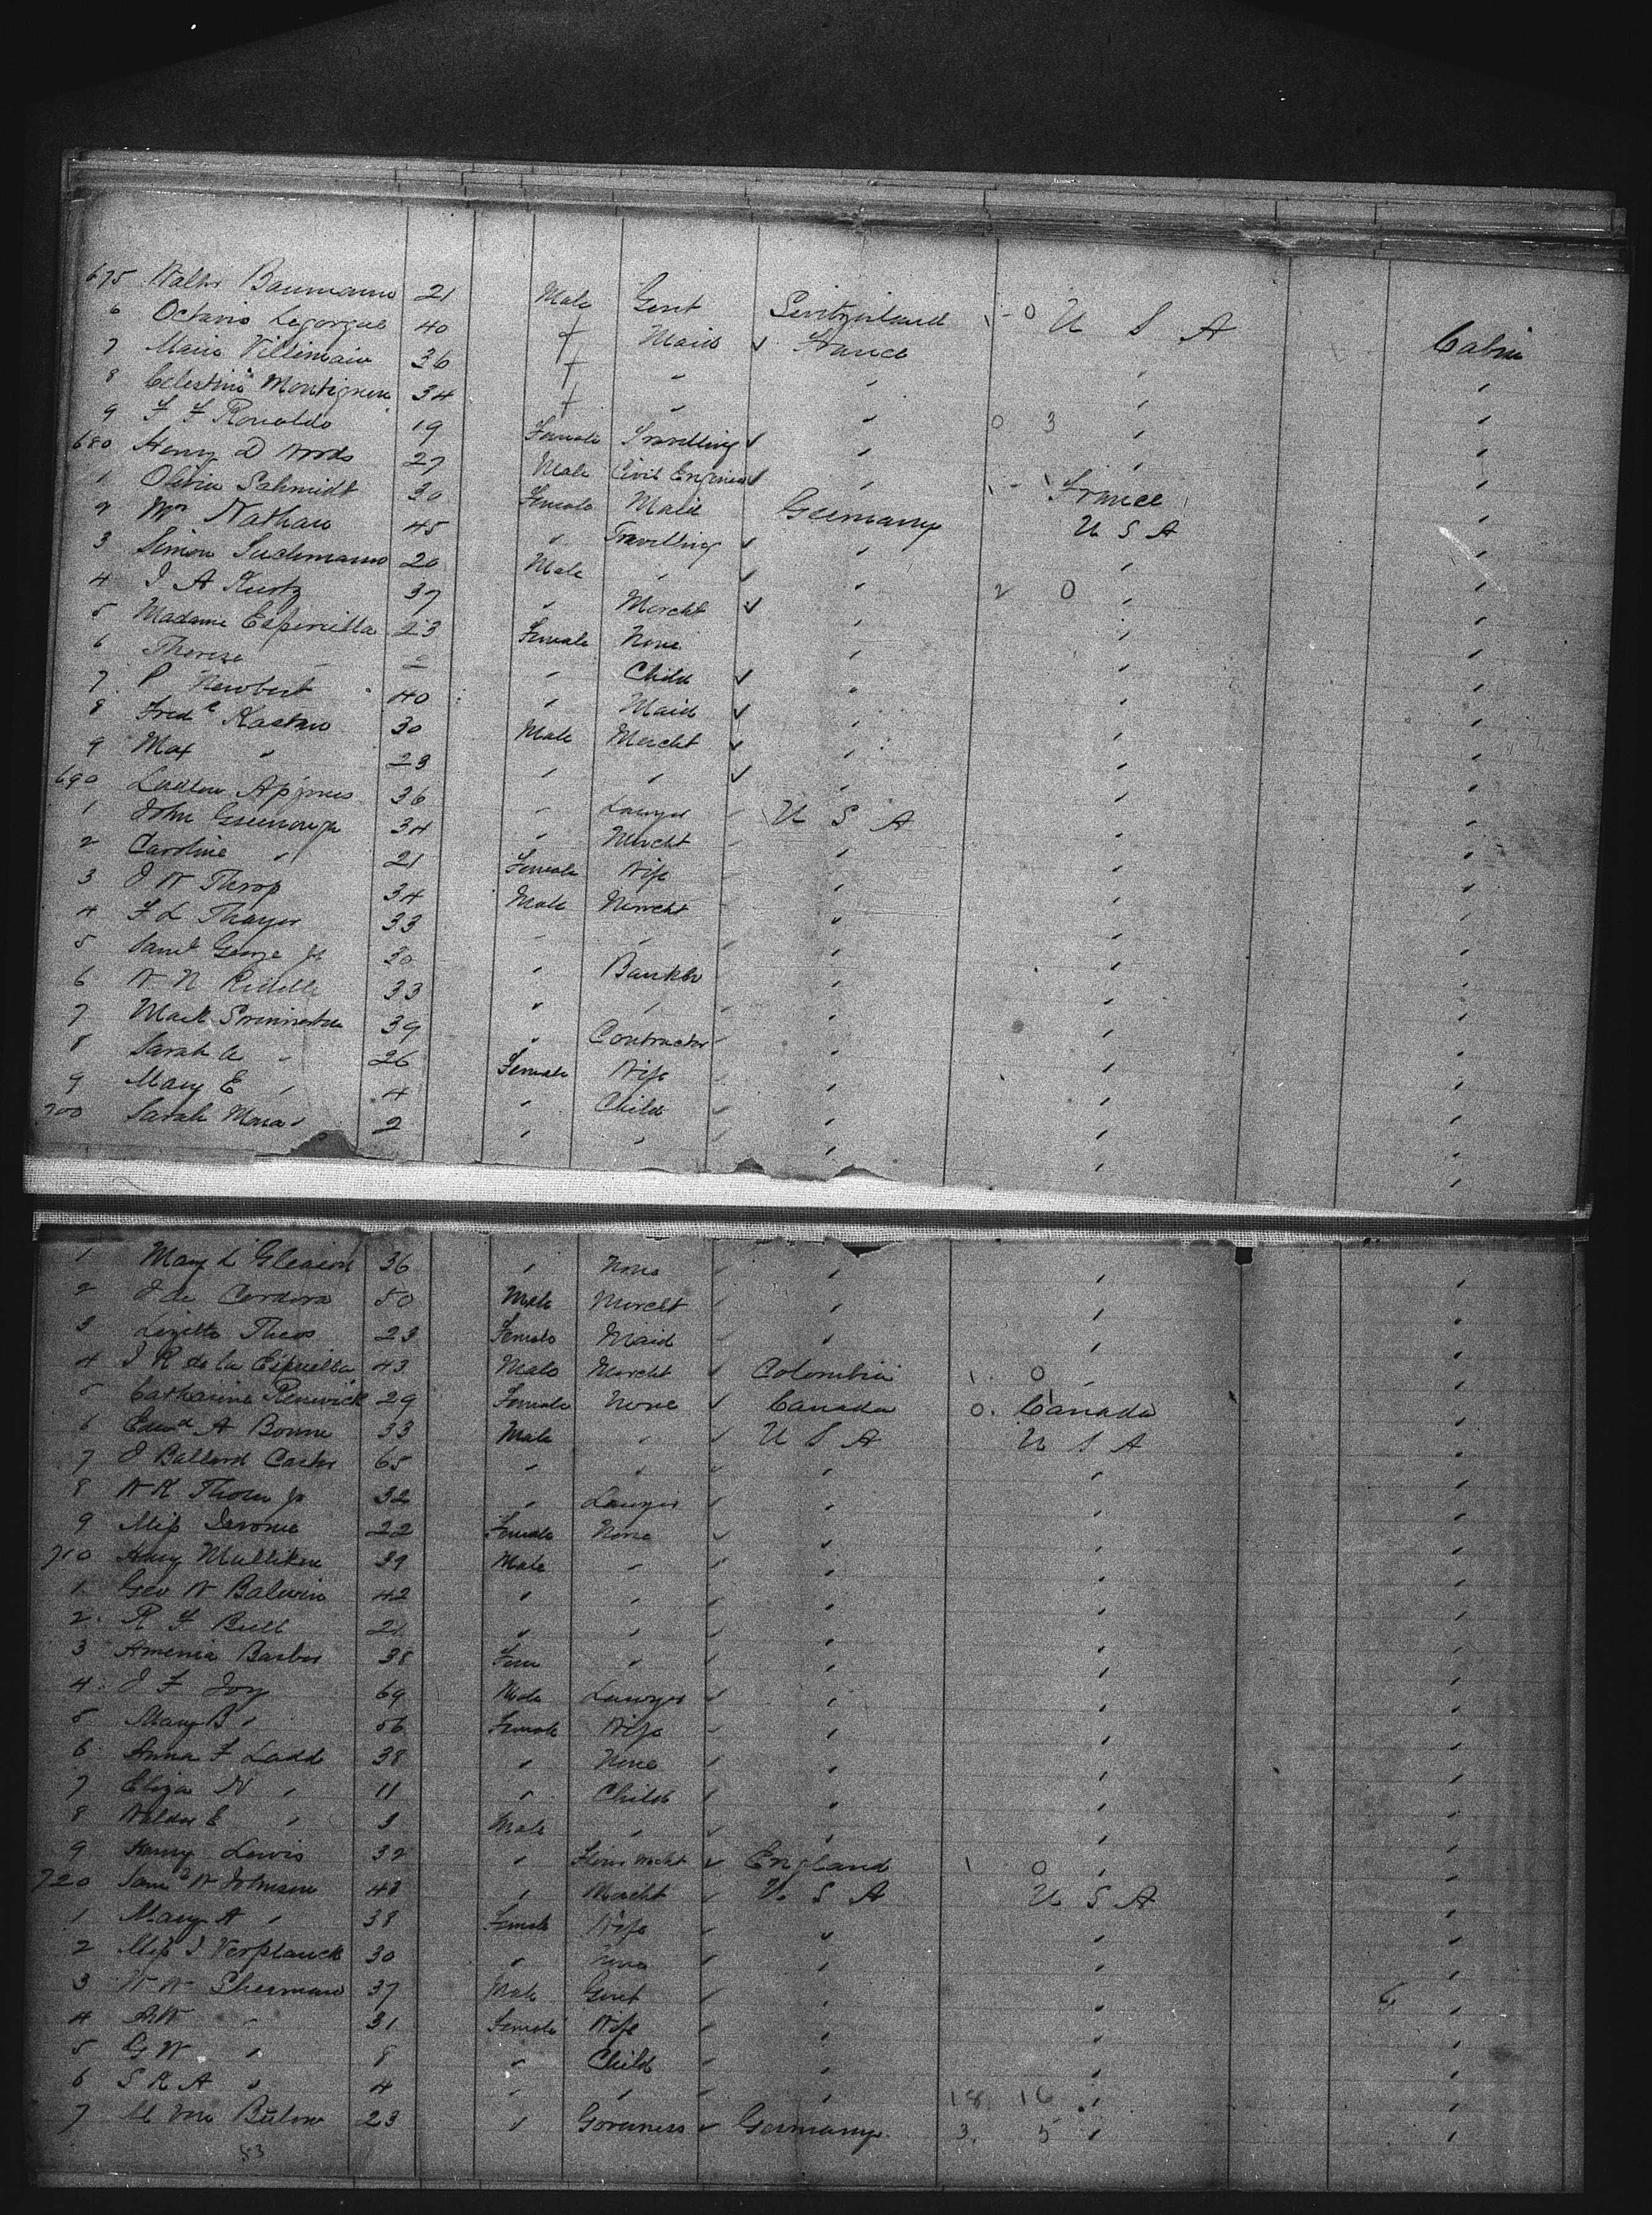 675 Baumann 21 Male Gent Switzerland - 0 U S A Cabin
6 Octavio 40 Maid ✓ France "
7 Maria 36 " " " "
8 34 " " " "
9 F F 19 Female Travelling ✓ " 0 3 " "
680 Henry D Woods 27 Male Civil Engineer ✓ " - France "
1 Olivia Schmidt 30 Female Maid Germany U S A "
2 Mrs Nathan 45 " Travelling ✓ " " "
3 Simon 20 Male " ✓ " 2 0 " "
4 J A Kurtz 37 " Mercht ✓ " " "
5 Madame Espriella 23 Female None " " "
6 Therese " Child ✓ " " "
7 P 40 " Maid ✓ " " "
8 Fredk 30 Male Mercht ✓ " " "
9 Max " 23 " " ✓ " " "
690 36 " Lawyer U S A " "
1 John Greenough 34 " Mercht " " "
2 Caroline " 21 Female Wife " " "
3 J W Throp 34 Male Mercht " " "
4 F L Thayer 33 " " " " "
5 Saml George Jr 30 " Banker " " "
6 W N 33 " " " " "
7 Mark 39 " Contractor " " "
8 Sarah A " 26 Female Wife " " "
9 Mary E " 4 " Child " " "
700 Sarah " 2 " " " " "
1 Mary L Gleason 36 " None " " "
2 J de Cordova 50 Male Mercht " " "
3 Lizette 23 Female Maid " " "
4 J R de la Espriella 43 Male Mercht ✓ Colombia 1 0 " "
5 Catharine Renwick 29 Female None ✓ Canada 0 1 Canada "
6 Edwd A 33 Male " ✓ U S A U S A "
7 J Ballard Carter 65 " " " " "
8 W K Thorn Jr 32 " Lawyer " " "
9 Miss Jerome 22 Female None " " "
710 Harry Mulliken 39 Male " " " "
1 Geo W Balwin 42 " " " " "
2 R F Bull 21 " " " " "
3 Amenia Barber 38 Fem " " " "
4 J F Joy 69 Male Lawyer " " "
5 Mary B " 56 Female Wife " " "
6 Anna F Ladd 38 " None " " "
7 Eliza N " 11 " Child " " "
8 E " Male " " " "
9 Henry Lewis 32 " ✓ England 1 0 " "
720 Saml W Johnson 48 " Mercht U S A U S A "
1 Mary A " 38 Female Wife " " "
2 Miss J Verplanck 30 " None " " "
3 W W Sherman 37 Male Gent " " "
4 " 31 Female Wife " " "
5 G W " 8 " Child " " "
6 S R A " 4 " " " 18 16 " "
7 M von Bülow 23 " Governess ✓ Germany 3 5 " "
53